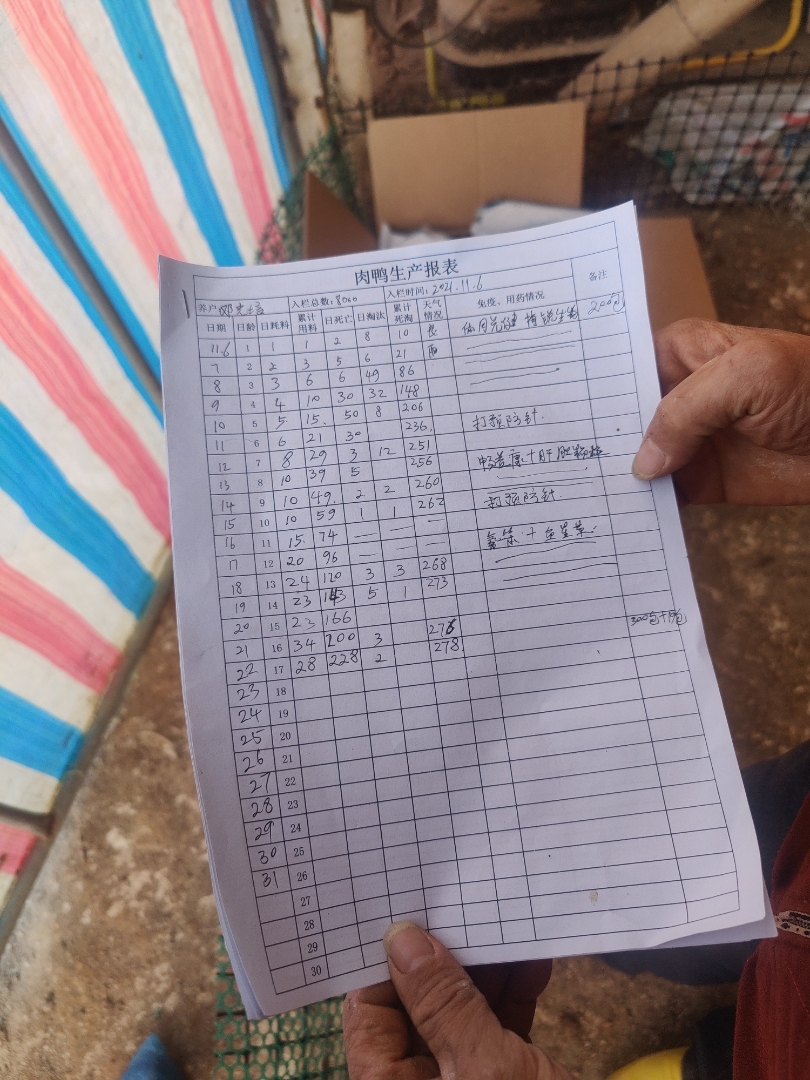 肉鸭生产报表
养户 入栏总数：8000 入栏时间：2021.11.6 备注
日期 日龄 日耗料 累计用料 日死亡 日淘汰 累计死淘 天气情况 免疫、用药情况
11.6 1 1 1 2 8 10 200包
7 2 2 3 5 6 21 雨
8 3 3 6 6 49 86
9 4 4 10 30 32 148
10 5 5 15 50 8 206
11 6 6 21 30 236 打预防针
12 7 8 29 3 12 251
13 8 10 39 5 256
14 9 10 49 2 2 260 打预防针
15 10 10 59 1 1 262
16 11 15 74 — — —
17 12 20 96 — — —
18 13 24 120 3 3 268
19 14 23 143 5 1 273
20 15 23 166
21 16 34 200 3 276
22 17 28 228 2 278
23 18
24 19
25 20
26 21
27 22
28 23
29 24
30 25
31 26
27
28
29
30